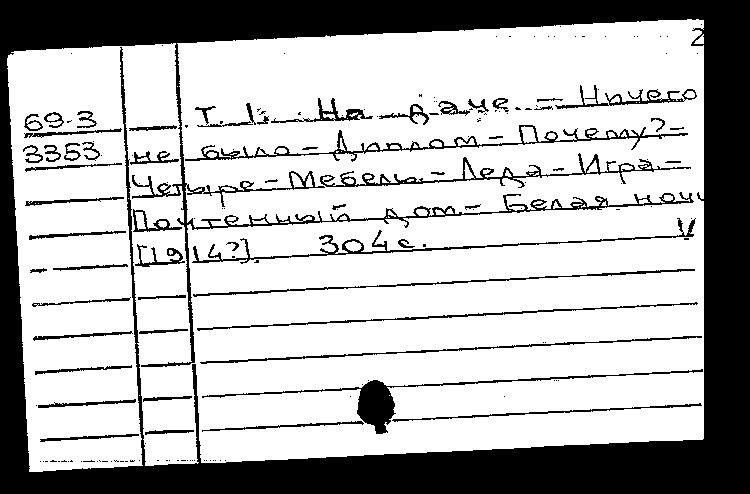 2
69-3 Т. 1. На даче. – Ничего
3353 не было – Диплом – Почему? –
Четыре – Мебель – Леда – Игра –
Почтенный дом – Белая ночь
[1914?]. 304 с. V